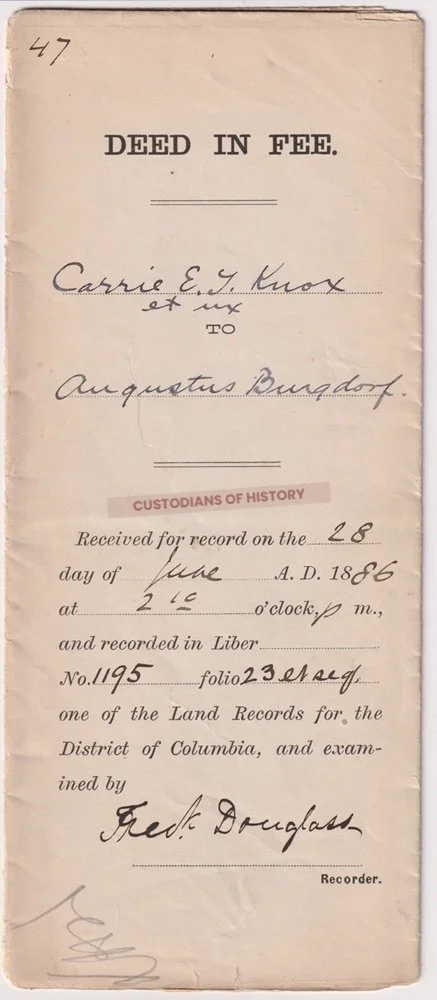 47
DEED IN FEE.
Carrie E. T. Knox
et ux
TO
Augustus Burgdorf.
CUSTODIANS OF HISTORY
Received for record on the 28
day of June A. D. 1886
at 2 10 o'clock, p m.,
and recorded in Liber
No. 1195 folio 23 et seq.
one of the Land Records for the
District of Columbia, and exam-
ined by
Fredk Douglass
Recorder.